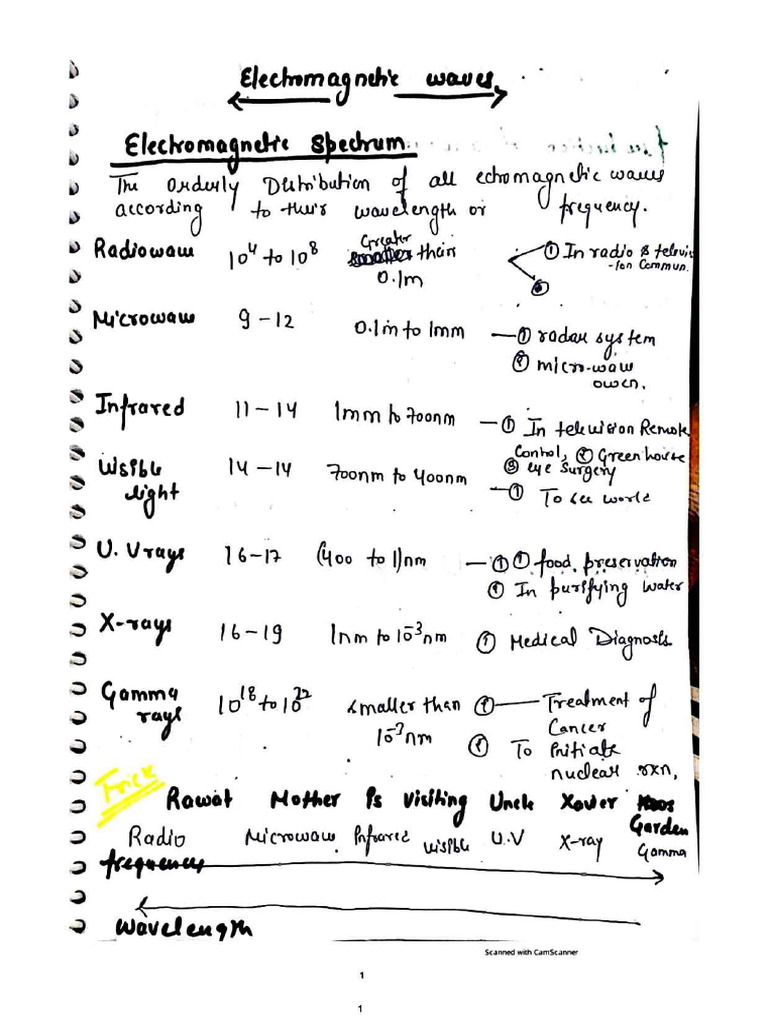 Electromagnetic waves
Electromagnetic Spectrum
The orderly Distribution of all echomagnetic waves
according to their wavelength or frequency.
Radiowaw 10⁴ to 10⁸ Greater than 0.1m ① In radio & televis-ion Commun.
Microwaw 9 – 12 0.1m to 1mm — ① radar system
② micro-waw
owen.
Infrared 11 – 14 1mm to 700nm — ① In television Remote
Control, ② Green house
③ eye surgery
Visible light 14 – 14 700nm to 400nm — ① To see world
U.V rays 16–17 (400 to 1)nm — ① ① food preservation
② In purifying water
X-rays 16 – 19 1nm to 10⁻³nm ① Medical Diagnosis
Gamma rays 10¹⁸ to 10²² smaller than 10⁻³nm ① — Treatment of
Cancer
② To Initiate
nuclear rxn,
Trick
Rawat Mother Is Visiting Uncle Xavier Garden
Radio Microwaw Infrared visible U.V X-ray Gamma
frequency
Wavelength
Scanned with CamScanner
1
1